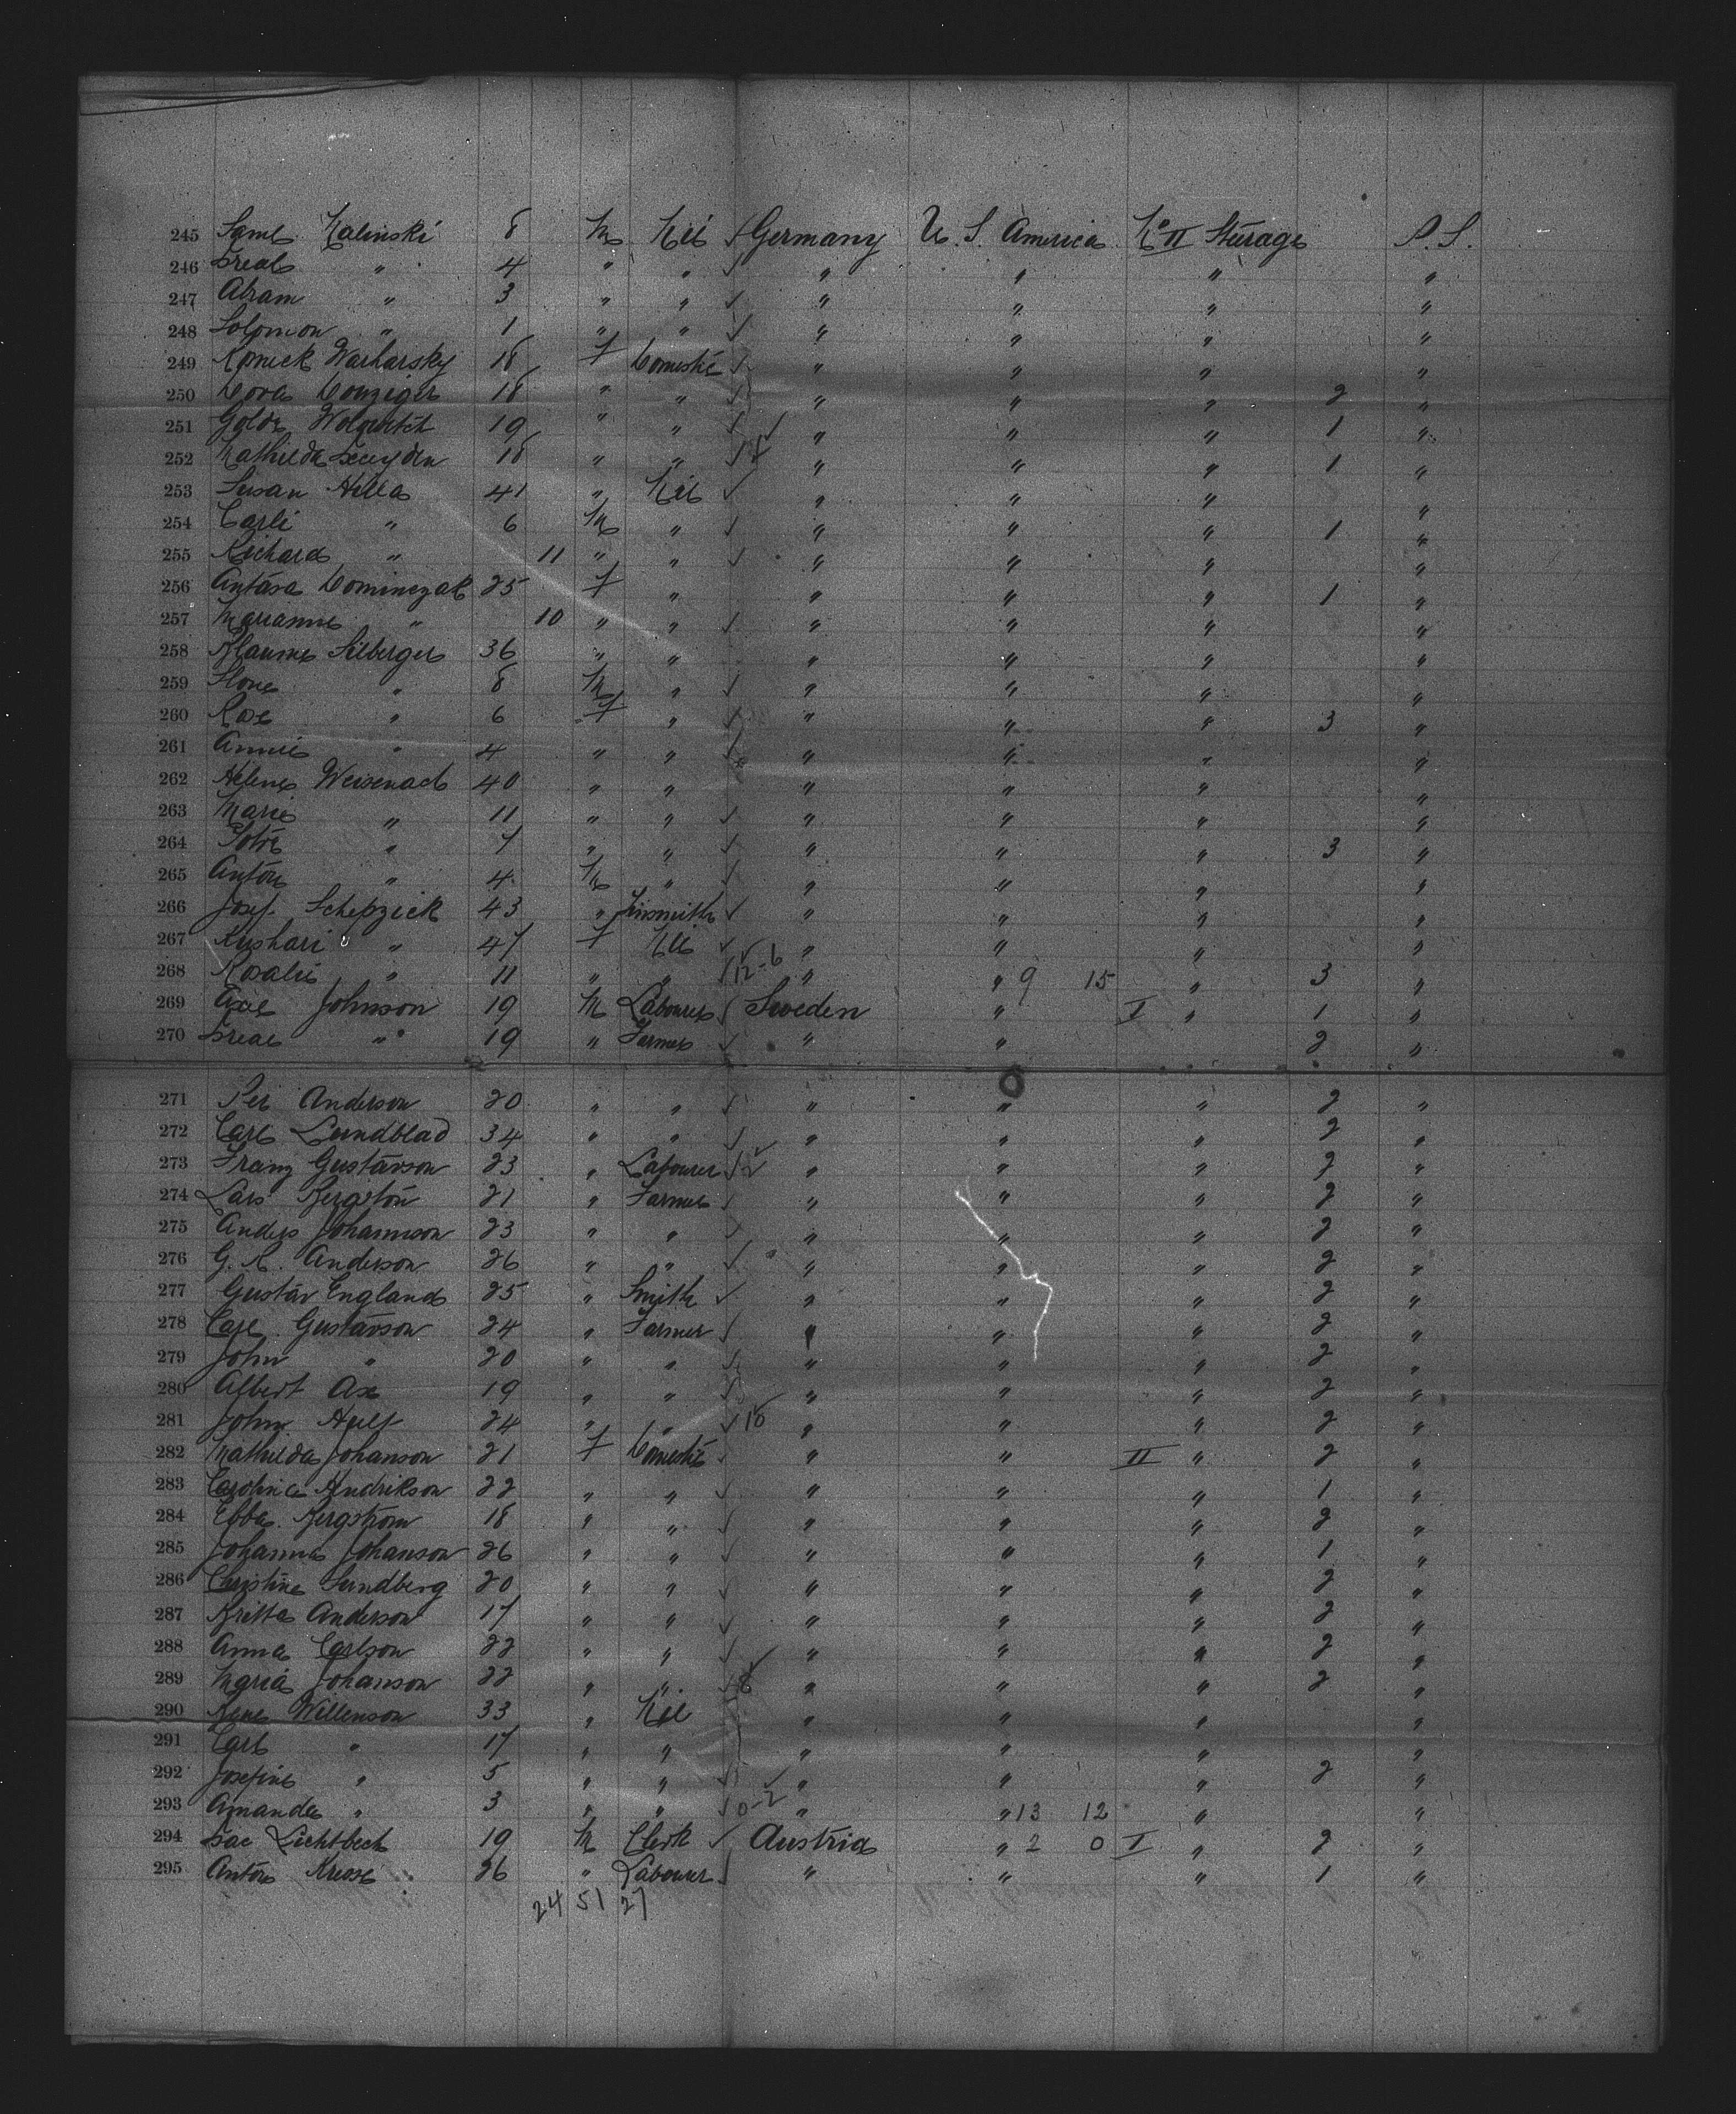 245 Saml Kalinski 8 M Nil ✓ Germany U. S. America No II Steerage P. S.
246 Isreal " 4 " " ✓ " " " "
247 Abram " 3 " " ✓ " " " "
248 Solomon " 1 " " ✓ " " " "
249 Warharsky 18 F Domestic ✓ " " " "
250 Dora Donziger 18 " " ✓ " " " 2 "
251 Golda 19 " " ✓ " " " 1 "
252 Mathilda 18 " " ✓ " " " 1 "
253 Susan Hilla 41 " Nil ✓ " " " "
254 Carli " 6 M " ✓ " " " 1 "
255 Richard " 11 " " ✓ " " " "
256 Dominczak 25 F " " " " 1 "
257 Marianne " 10 " " ✓ " " " "
258 Silberger 36 " " " " " "
259 " 8 M " ✓ " " " "
260 Rose " 6 F " ✓ " " " 3 "
261 Annie " 4 " " ✓ " " " "
262 Helene Weisenack 40 " " " " " "
263 Marie " 11 " " ✓ " " " "
264 " 7 " " ✓ " " " 3 "
265 Anton " 4 M " ✓ " " " "
266 Josef Schepzick 43 " Tinsmith ✓ " " " "
267 " 47 F Nil ✓ " " " "
268 Rosalie " 11 " " ✓ 12-6 " " 9 15 " 3 "
269 Axel Johnson 19 M Labourer ✓ Sweden " I " 1 "
270 Isreal " 19 " Farmer ✓ " " 2 "
271 Per Anderson 20 " " ✓ " " " 2 "
272 Carl Lundblad 34 " " ✓ " " " 2 "
273 Franz Gustavson 23 " Labourer ✓ " " " 2 "
274 Lars 21 " Farmer ✓ " " " 2 "
275 Anders Johannson 23 " " ✓ " " " 2 "
276 G. A. Anderson 26 " " ✓ " " " 2 "
277 Gustav England 25 " Smith ✓ " " " 2 "
278 Carl Gustavson 24 " Farmer ✓ " " " 2 "
279 John " 20 " " ✓ " " " 2 "
280 Albert Ax 19 " " ✓ " " " 2 "
281 John Hult 24 " " ✓ " " " 2 "
282 Mathilda Johanson 21 F Domestic ✓ " " II " 2 "
283 Carolina Hendrikson 22 " " ✓ " " " 1 "
284 Ebba Bergstrom 18 " " ✓ " " " 2 "
285 Johanna Johanson 26 " " ✓ " " " 1 "
286 Christine Sundberg 20 " " ✓ " " " 2 "
287 Britta Anderson 17 " " ✓ " " " 2 "
288 Anna Carlson 22 " " ✓ " " " 2 "
289 Maria Johanson 22 " " ✓ 8 " " " 2 "
290 Willenson 33 " Nil " " " "
291 Carl " 17 " " " " " "
292 Josefine " 5 " " ✓ " " " 2 "
293 Amanda " 3 " " ✓ 0-2 " " 13 12 " "
294 Isac Lichtbech 19 M Clerk ✓ Austria " 2 0 I " 2 "
295 Anton 26 " Labourer ✓ " " " 1 "
24 51 27